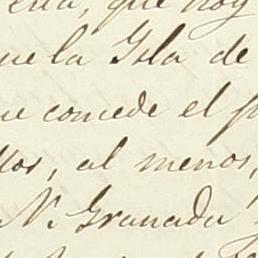 que hoy
que la Isla de
que concede el
llos, al menos,
N. Granada